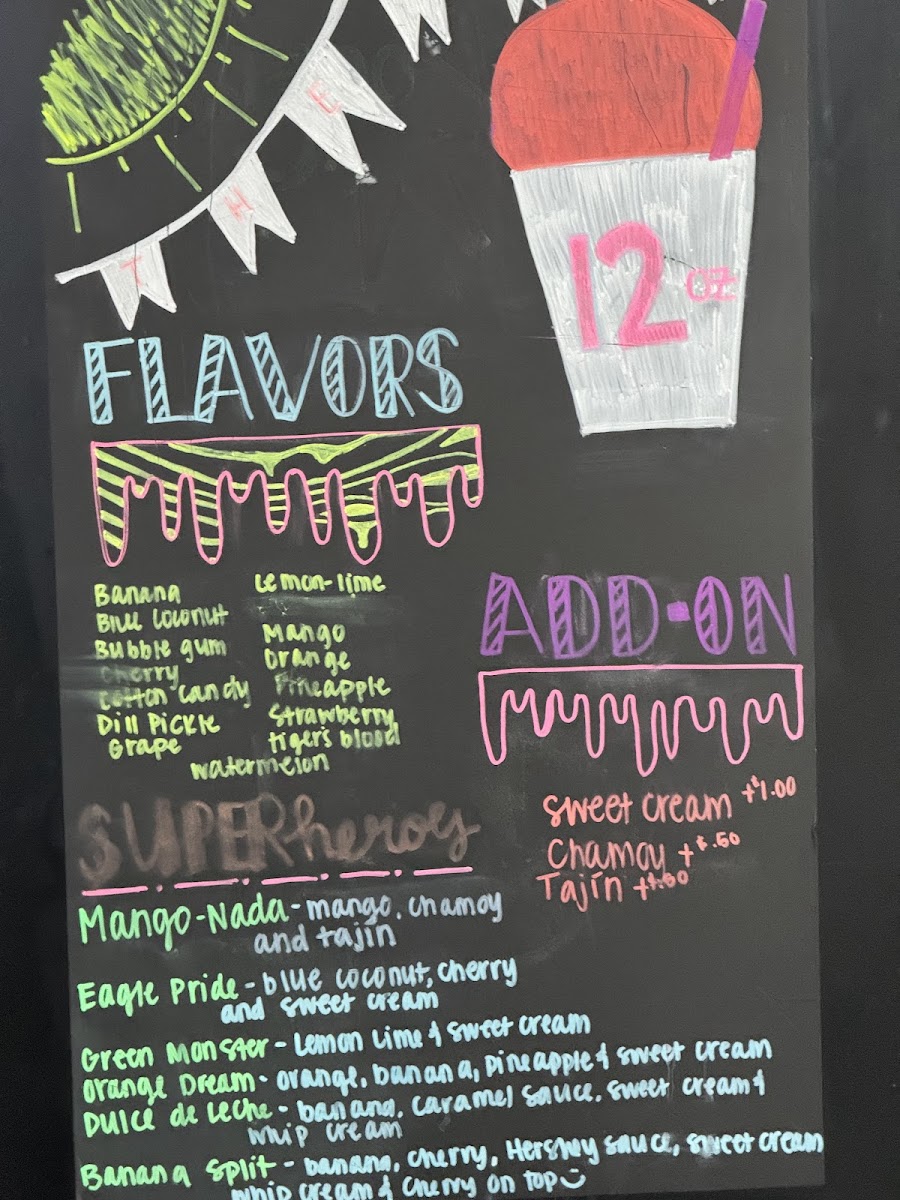 T H E
12 oz
FLAVORS
Banana
Blue Coconut
Bubble gum
Cherry
Cotton Candy
Dill Pickle
Grape
Lemon-lime
Mango
Orange
Pineapple
Strawberry
tiger's blood
watermelon
ADD-ON
Sweet cream +$1.00
Chamoy +$.50
Tajín +$.50
SUPERheroes
Mango-Nada - mango, chamoy
and tajín
Eagle Pride - blue coconut, cherry
and sweet cream
Green Monster - Lemon Lime & sweet cream
Orange Dream - orange, banana, pineapple & sweet cream
Dulce de Leche - banana, caramel sauce, sweet cream &
whip cream
Banana Split - banana, cherry, Hershey sauce, sweet cream
whip cream & cherry on top